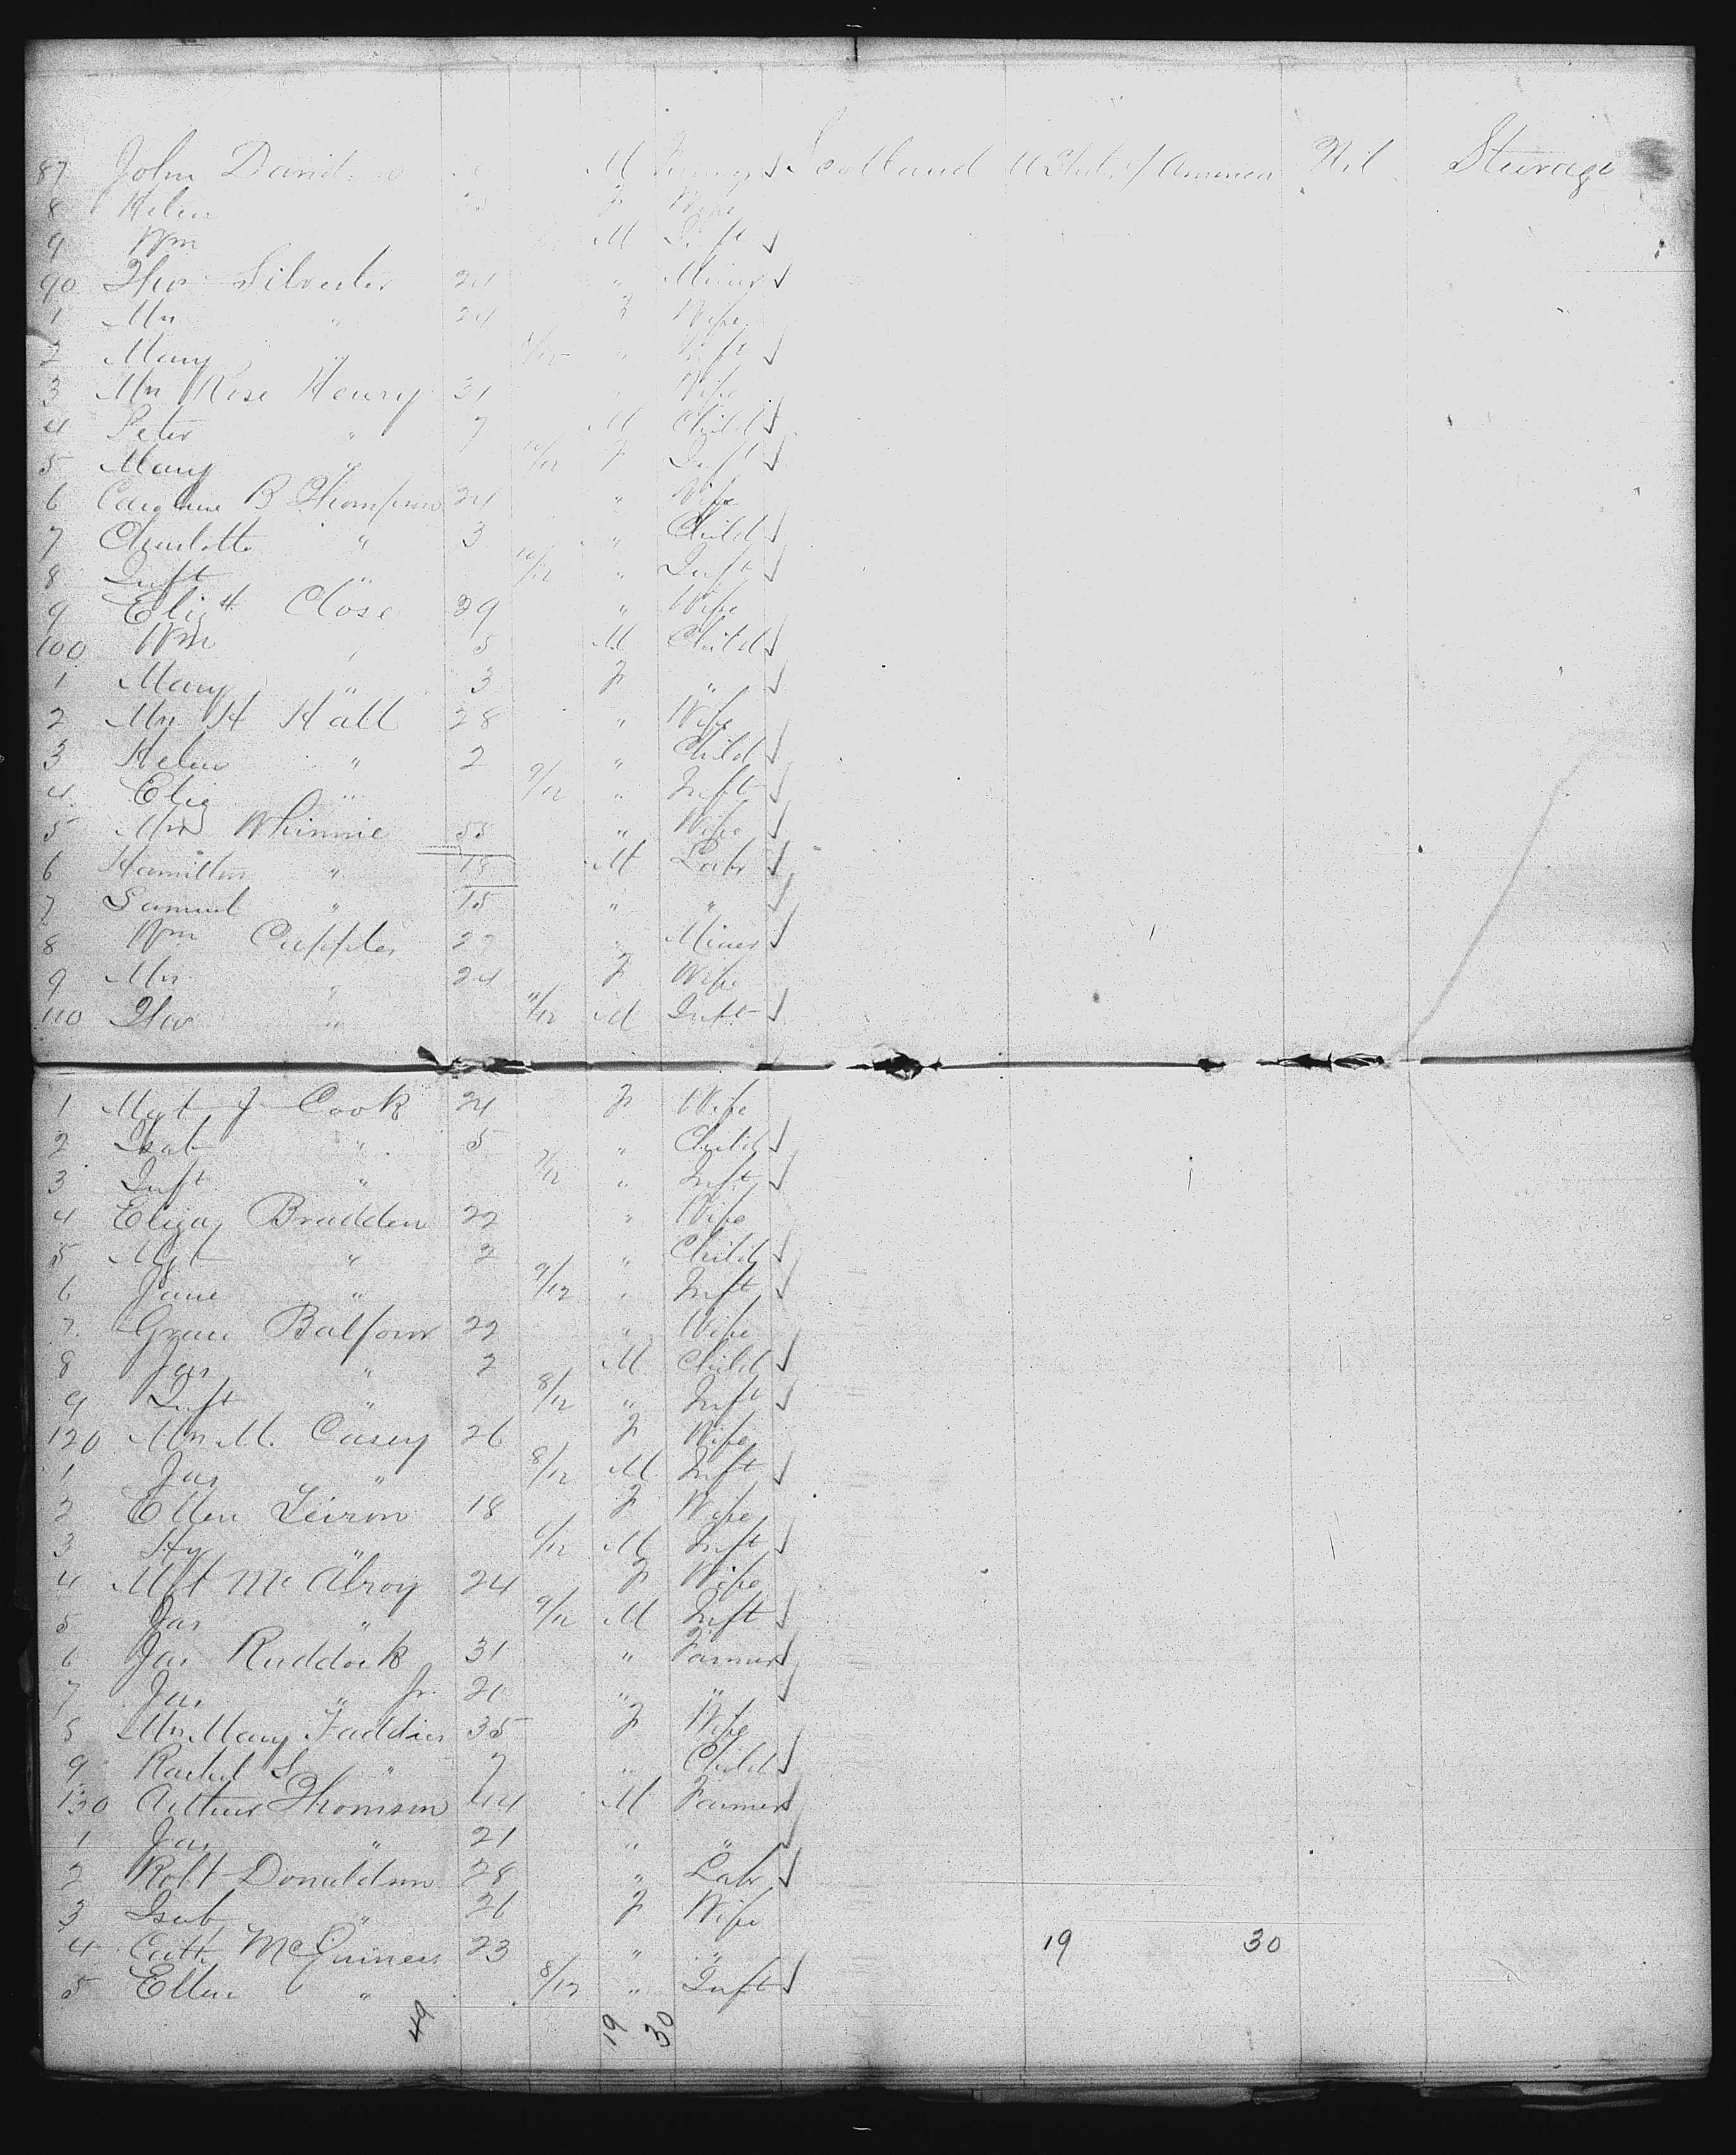 87 John David M Scotland U States of America Nil Steerage
8 Helen F Wife
9 Wm M Inft
90 Thos Silvester 24 " Miner
1 Mrs " 24 F Wife
2 Mary " " Inft
3 Mrs Rose Henry 31 " Wife
4 Peter " 7 M Child
5 Mary " 10/12 F Inft
6 Caroline B Thompson 24 " Wife
7 Charlotte " 3 " Child
8 Inft " 10/12 " Inft
9 Elizth Close 29 " Wife
100 Wm " 5 M Child
1 Mary " 3 F "
2 Mrs H Hall 28 " Wife
3 Helen " 2 " Child
4 Eliz " 9/12 " Inft
5 Mrs Whinnie 55 " Wife
6 Hamilton " 18 M Labr
7 Samuel " 15 " "
8 Wm Cupples 27 " Miner
9 Mrs " 24 F Wife
110 Thos " 11/12 M Inft
1 Mgt J Cook 24 F Wife
2 Isab " 5 " Child
3 Inft " 7/12 " Inft
4 Eliza Bradden 22 " Wife
5 Mgt " 2 " Child
6 Jane " 9/12 " Inft
7 Grace Balfour 22 " Wife
8 Jas " 2 M Child
9 Inft " 8/12 " Inft
120 Mrs M. Casey 26 F Wife
1 Jas " 8/12 M Inft
2 Ellen 18 F Wife
3 Hy " 6/12 M Inft
4 Mgt McAlroy 24 F Wife
5 Jas " 9/12 M Inft
6 Jas Ruddock 31 " Farmer
7 Jas " Jr. 20 " "
8 Mrs Mary Faddies 35 F Wife
9 Rachel S " 7 " Child
130 Arthur Thomson 44 M Farmer
1 Jas " 21 " "
2 Robt Donaldson 28 " Labr
3 Isab " 26 F Wife
4 Cath McGuiness 23 " " 19 30
5 Ellen " 8/12 " Inft
49 19 30